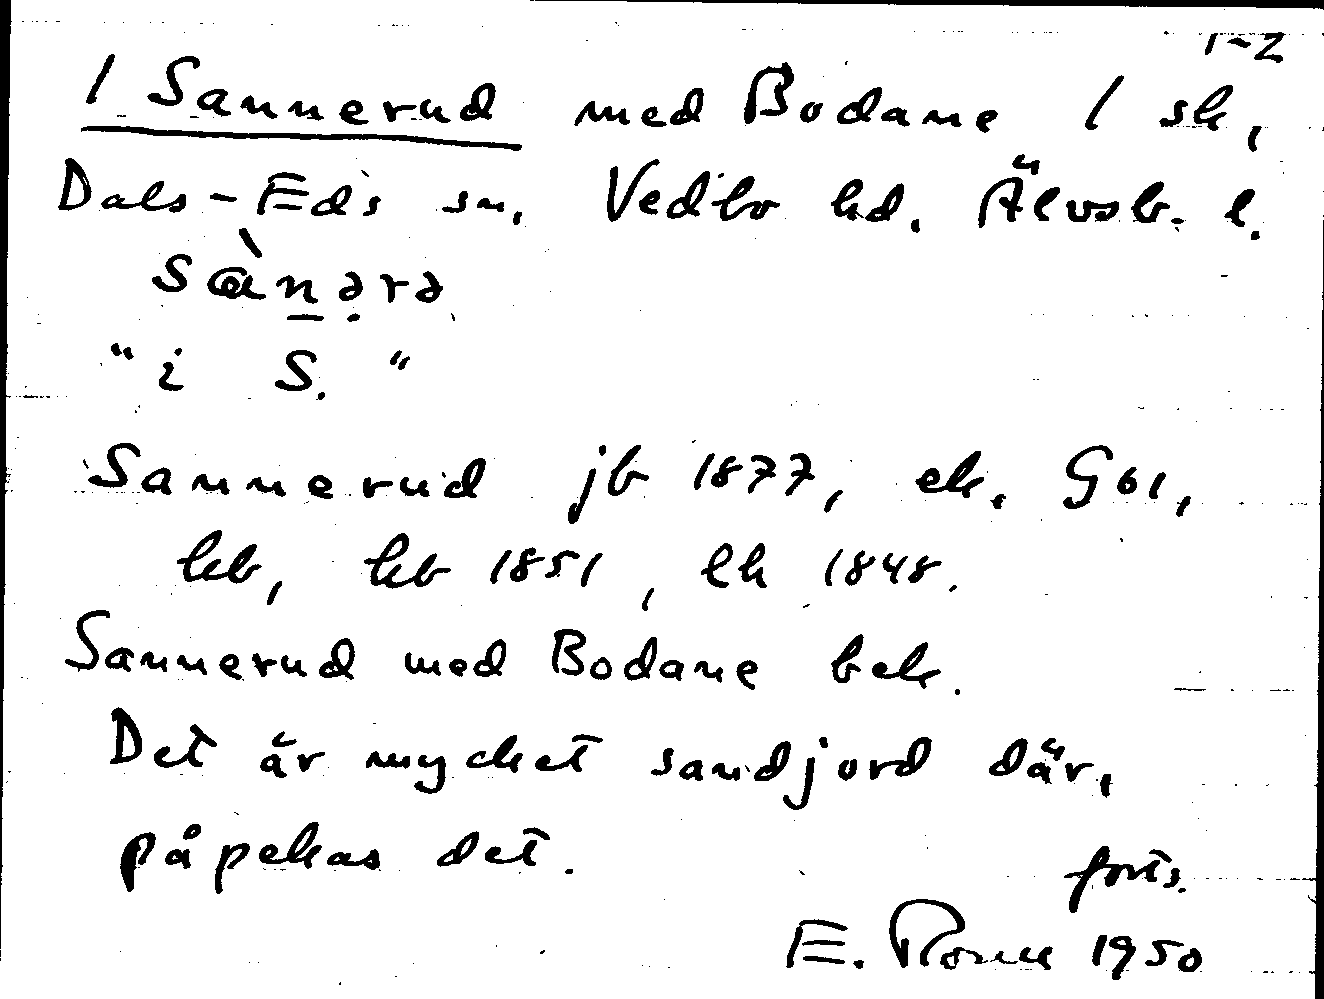 1-2
/ Sannerud med Bodane / sk,
Dals-Eds sn. Vedbo hd. Älvsb. l.
sàn̲ə̣rə
"i S."
Sannerud jb 1877, ek. G61,
kb, hb 1851, lh 1848.
Sannerud med Bodane bek.
Det är mycket sandjord där,
påpekas det.
forts.
E. 1950